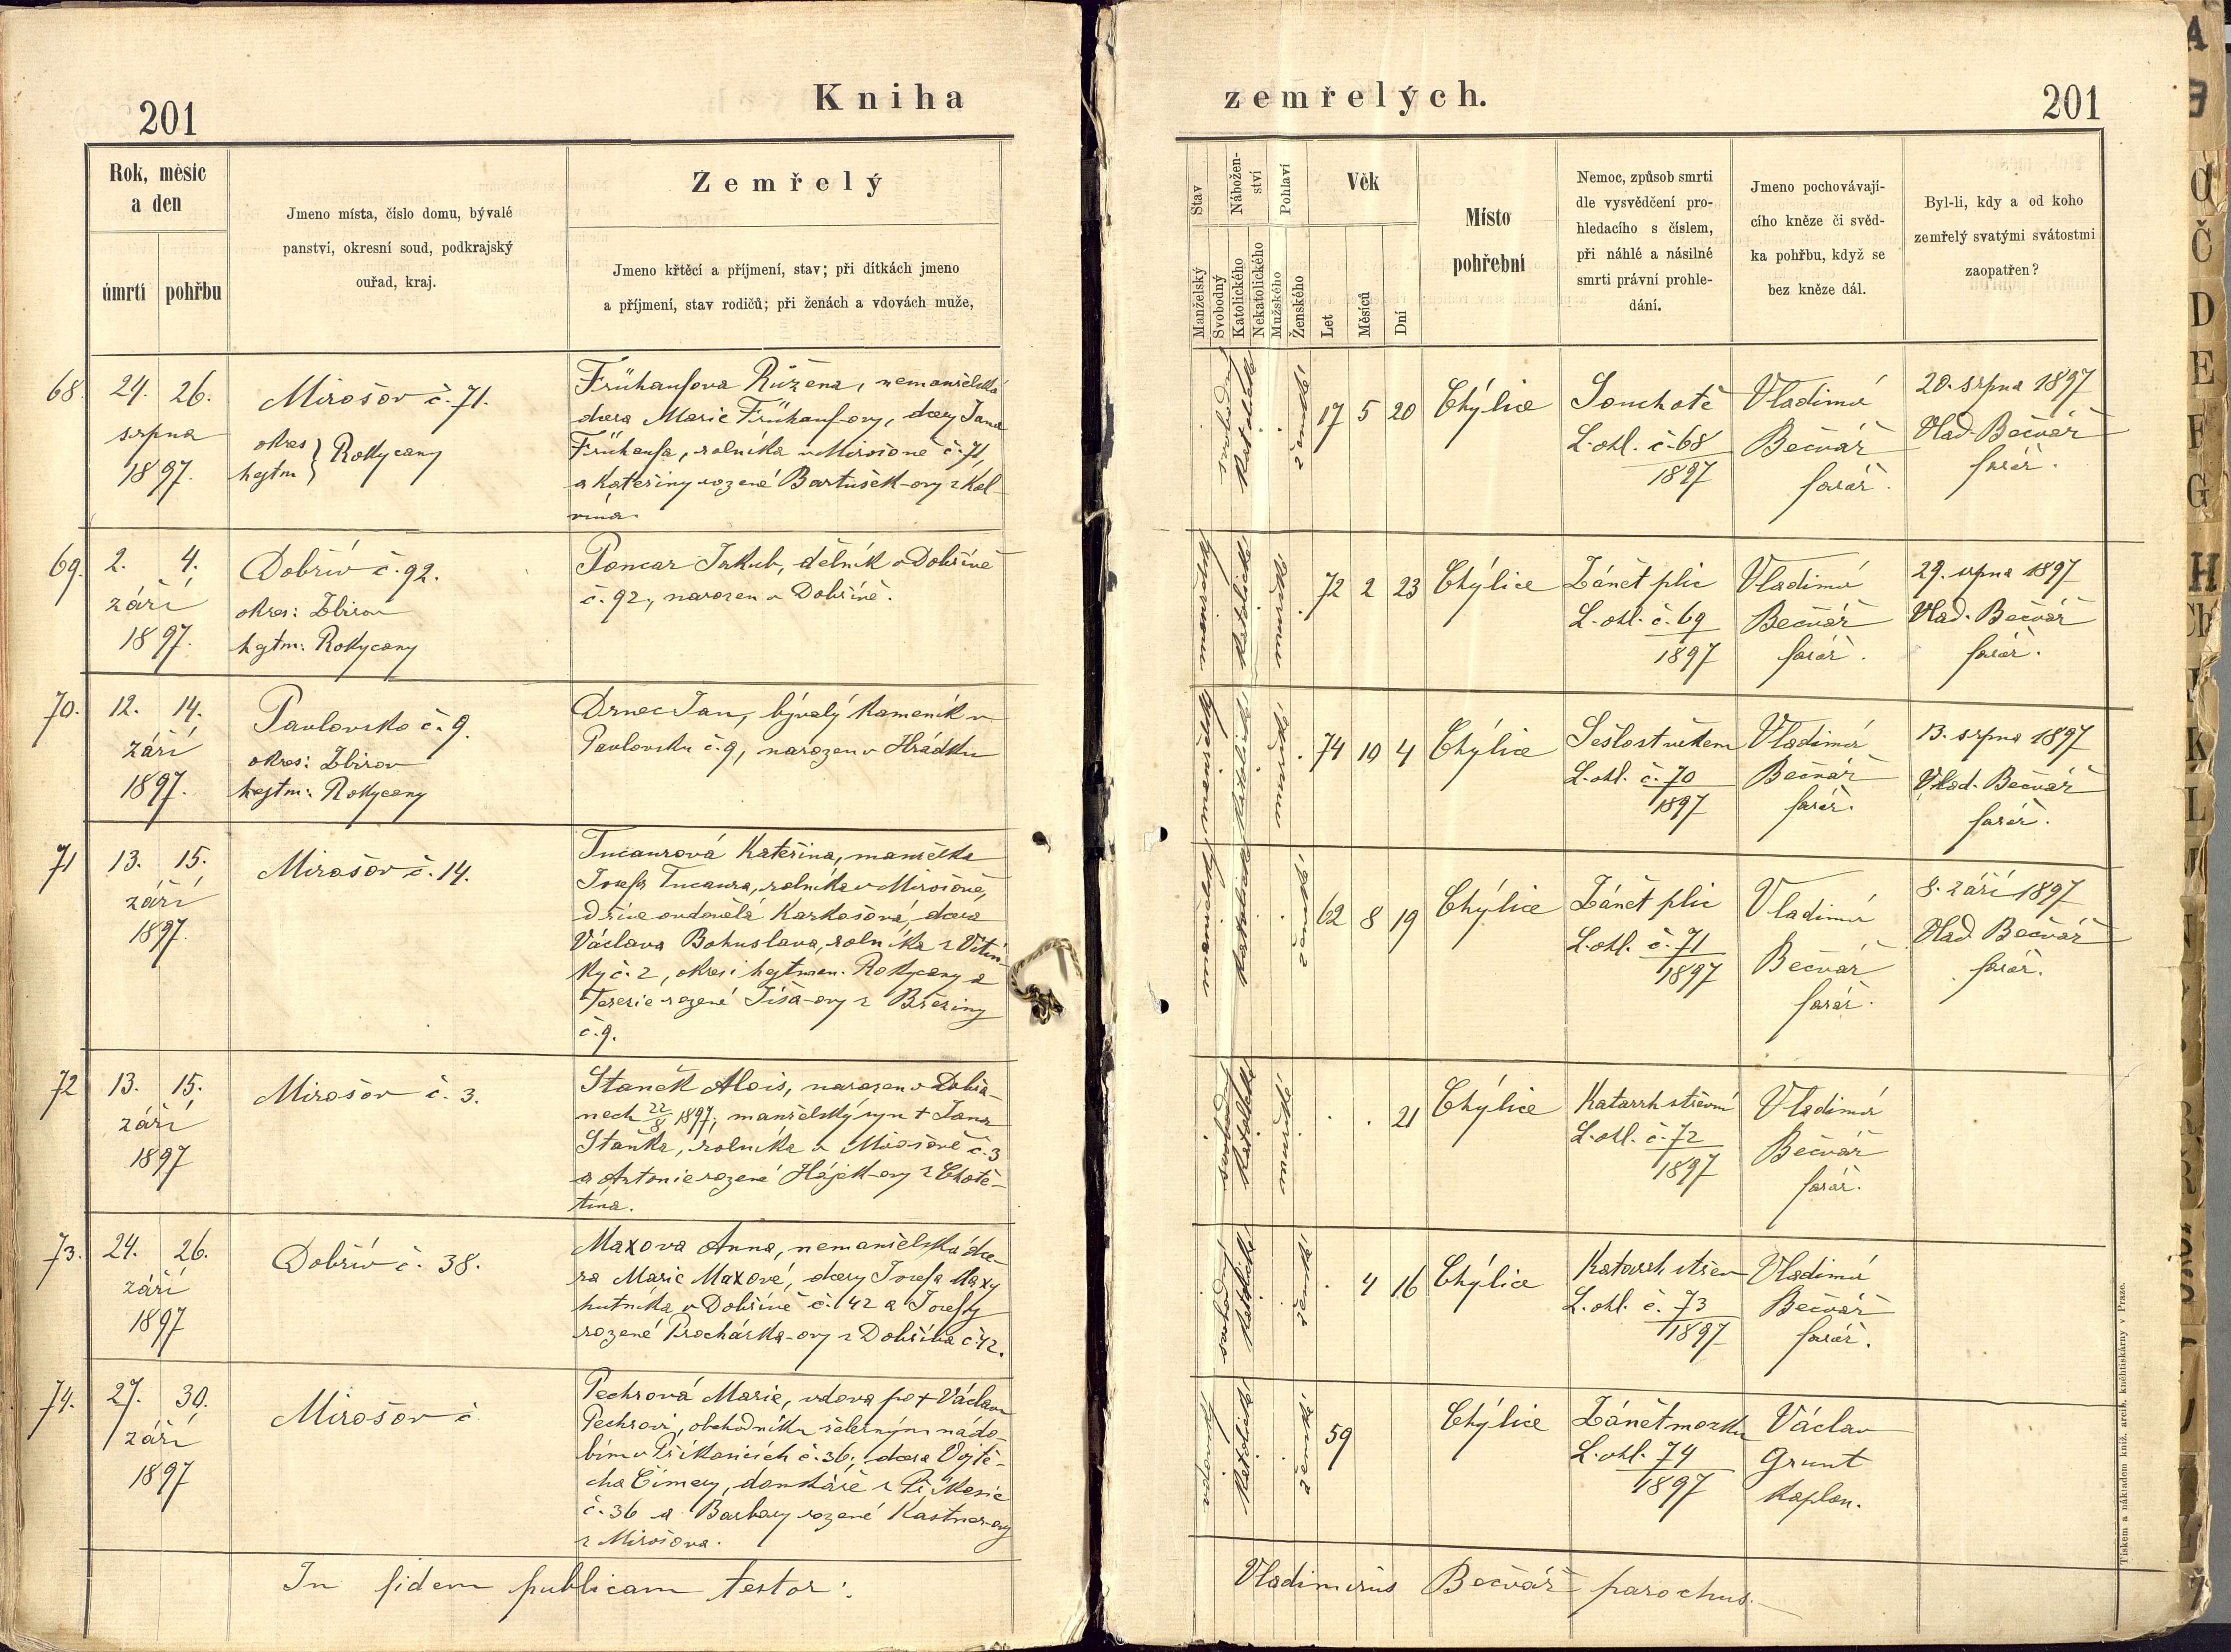 201
Kniha
zemřelých.
201
Rok, měsíc
a den
úmrtí
pohřbu
Jmeno místa, číslo domu, bývalé
panství, okresní soud, podkrajský
ouřad, kraj.
Zemřelý
Jmeno křtěcí a příjmení, stav; při dítkách jmeno
a příjmení, stav rodičů; při ženách a vdovách muže,
Stav
Manželský
Svobodný
Nábožen-
ství
Katolického
Nekatolického
Pohlaví
Mužského
Ženského
Věk
Let
Měsíců
Dní
Místo
pohřební
Nemoc, způsob smrti
dle vysvědčení pro-
hledacího s číslem,
při náhlé a násilné
smrti právní prohle-
dání.
Jmeno pochovávají-
cího kněze či svěd-
ka pohřbu, když se
bez kněze dál.
Byl-li, kdy a od koho
zemřelý svatými svátostmi
zaopatřen?
68.
24. 26.
srpna
1897.
Mirošov č. 71.
okres
hejtm } Rokycany
Frühaufova Růžena, nemanželská
dcera Marie Frühauf-ovy, dcery Jana
Frühaufa, rolníka v Mirošově č. 71,
a Kateřiny rozené Bartušek-ovy z Kal-
svobodný
katolické
ženské
17 5 20
Chýlice
Souchotě
L. ohl. č. 68
1897
Vladimír
Bečvář
farář.
20. srpna 1897
Vlad. Bečvář
farář.
69.
2. 4.
září
1897.
Dobřív č. 92.
okres: Zbirov
hejtm: Rokycany
Poncar Jakub, dělník v Dobřívě
č. 92., narozen v Dobřívě.
katolické
mužské
72 2 23
Chýlice
Zánět plic
L. ohl. č. 69
1897
Vladimír
Bečvář
farář.
29. srpna 1897
Vlad. Bečvář
farář.
70.
12. 14.
září
1897.
Pavlovsko č. 9.
okres: Zbirov
hejtm: Rokycany
Drnec Jan, bývalý kameník v
Pavlovsku č. 9, narozen v Hrádku
manželský
katolické
mužské
74 10 4
Chýlice
Sešlost věkem
L. ohl. č. 70
1897
Vladimír
Bečvář
farář.
13. srpna 1897
Vlad. Bečvář
farář.
71
13. 15.
září
1897.
Mirošov č. 14.
Tucaurová Kateřina, manželka
Josefa Tucaura, rolníka v Mirošově,
dříve ovdovělá Karkošová, dcera
Václava Bohuslava, rolníka z Vitin-
ky č. 2, okres i hejtman. Rokycany a
Terezie rozené Tíša-ovy z Březiny
č. 9.
manželský
katolické
ženské
62 8 19
Chýlice
Zánět plic
L. ohl. č. 71
1897
Vladimír
Bečvář
farář.
8. září 1897
Vlad. Bečvář
farář.
72
13. 15.
září
1897
Mirošov č. 3.
Staněk Alois, narozen v Dobřa-
nech 22/8 1897, manželský syn † Jana
Staňka, rolníka v Mirošově č. 3
a Antonie rozené Hájek-ovy z Chotě-
tína.
svobodný
katolické
mužské
21
Chýlice
Katarrh střevní
L. ohl. č. 72
1897
Vladimír
Bečvář
farář.
73.
24. 26.
září
1897
Dobřív č. 38.
Maxova Anna, nemanželská dce-
ra Marie Maxové, dcery Josefa Maxy
hutníka v Dobřívě č. 42 a Josefy
rozené Procházka-ovy z Dobříva č. 42.
svobodný
katolické
ženské
4 16
Chýlice
Katarrh střev
L. ohl. č. 73
1897
Vladimír
Bečvář
farář.
74.
27. 30.
září
1897
Mirošov č
Pechrová Marie, vdova po † Václavu
Pechrovi, obchodníku železným nádo-
bím v Příkosicích č. 36; dcera Vojtě-
cha Čimery, domkáře z Příkosic
č. 36 a Barbory rozené Kastner-ovy
z Mirošova.
vdovský
katolické
ženské
59
Chýlice
Zánět mozku
L. ohl. 74
1897
Václav
Grunt
kaplan.
In fidem publicam testor:
Vladimirus Bečvář parochus.
Tiskem a nákladem kníž. arcib. knihtiskárny v Praze.